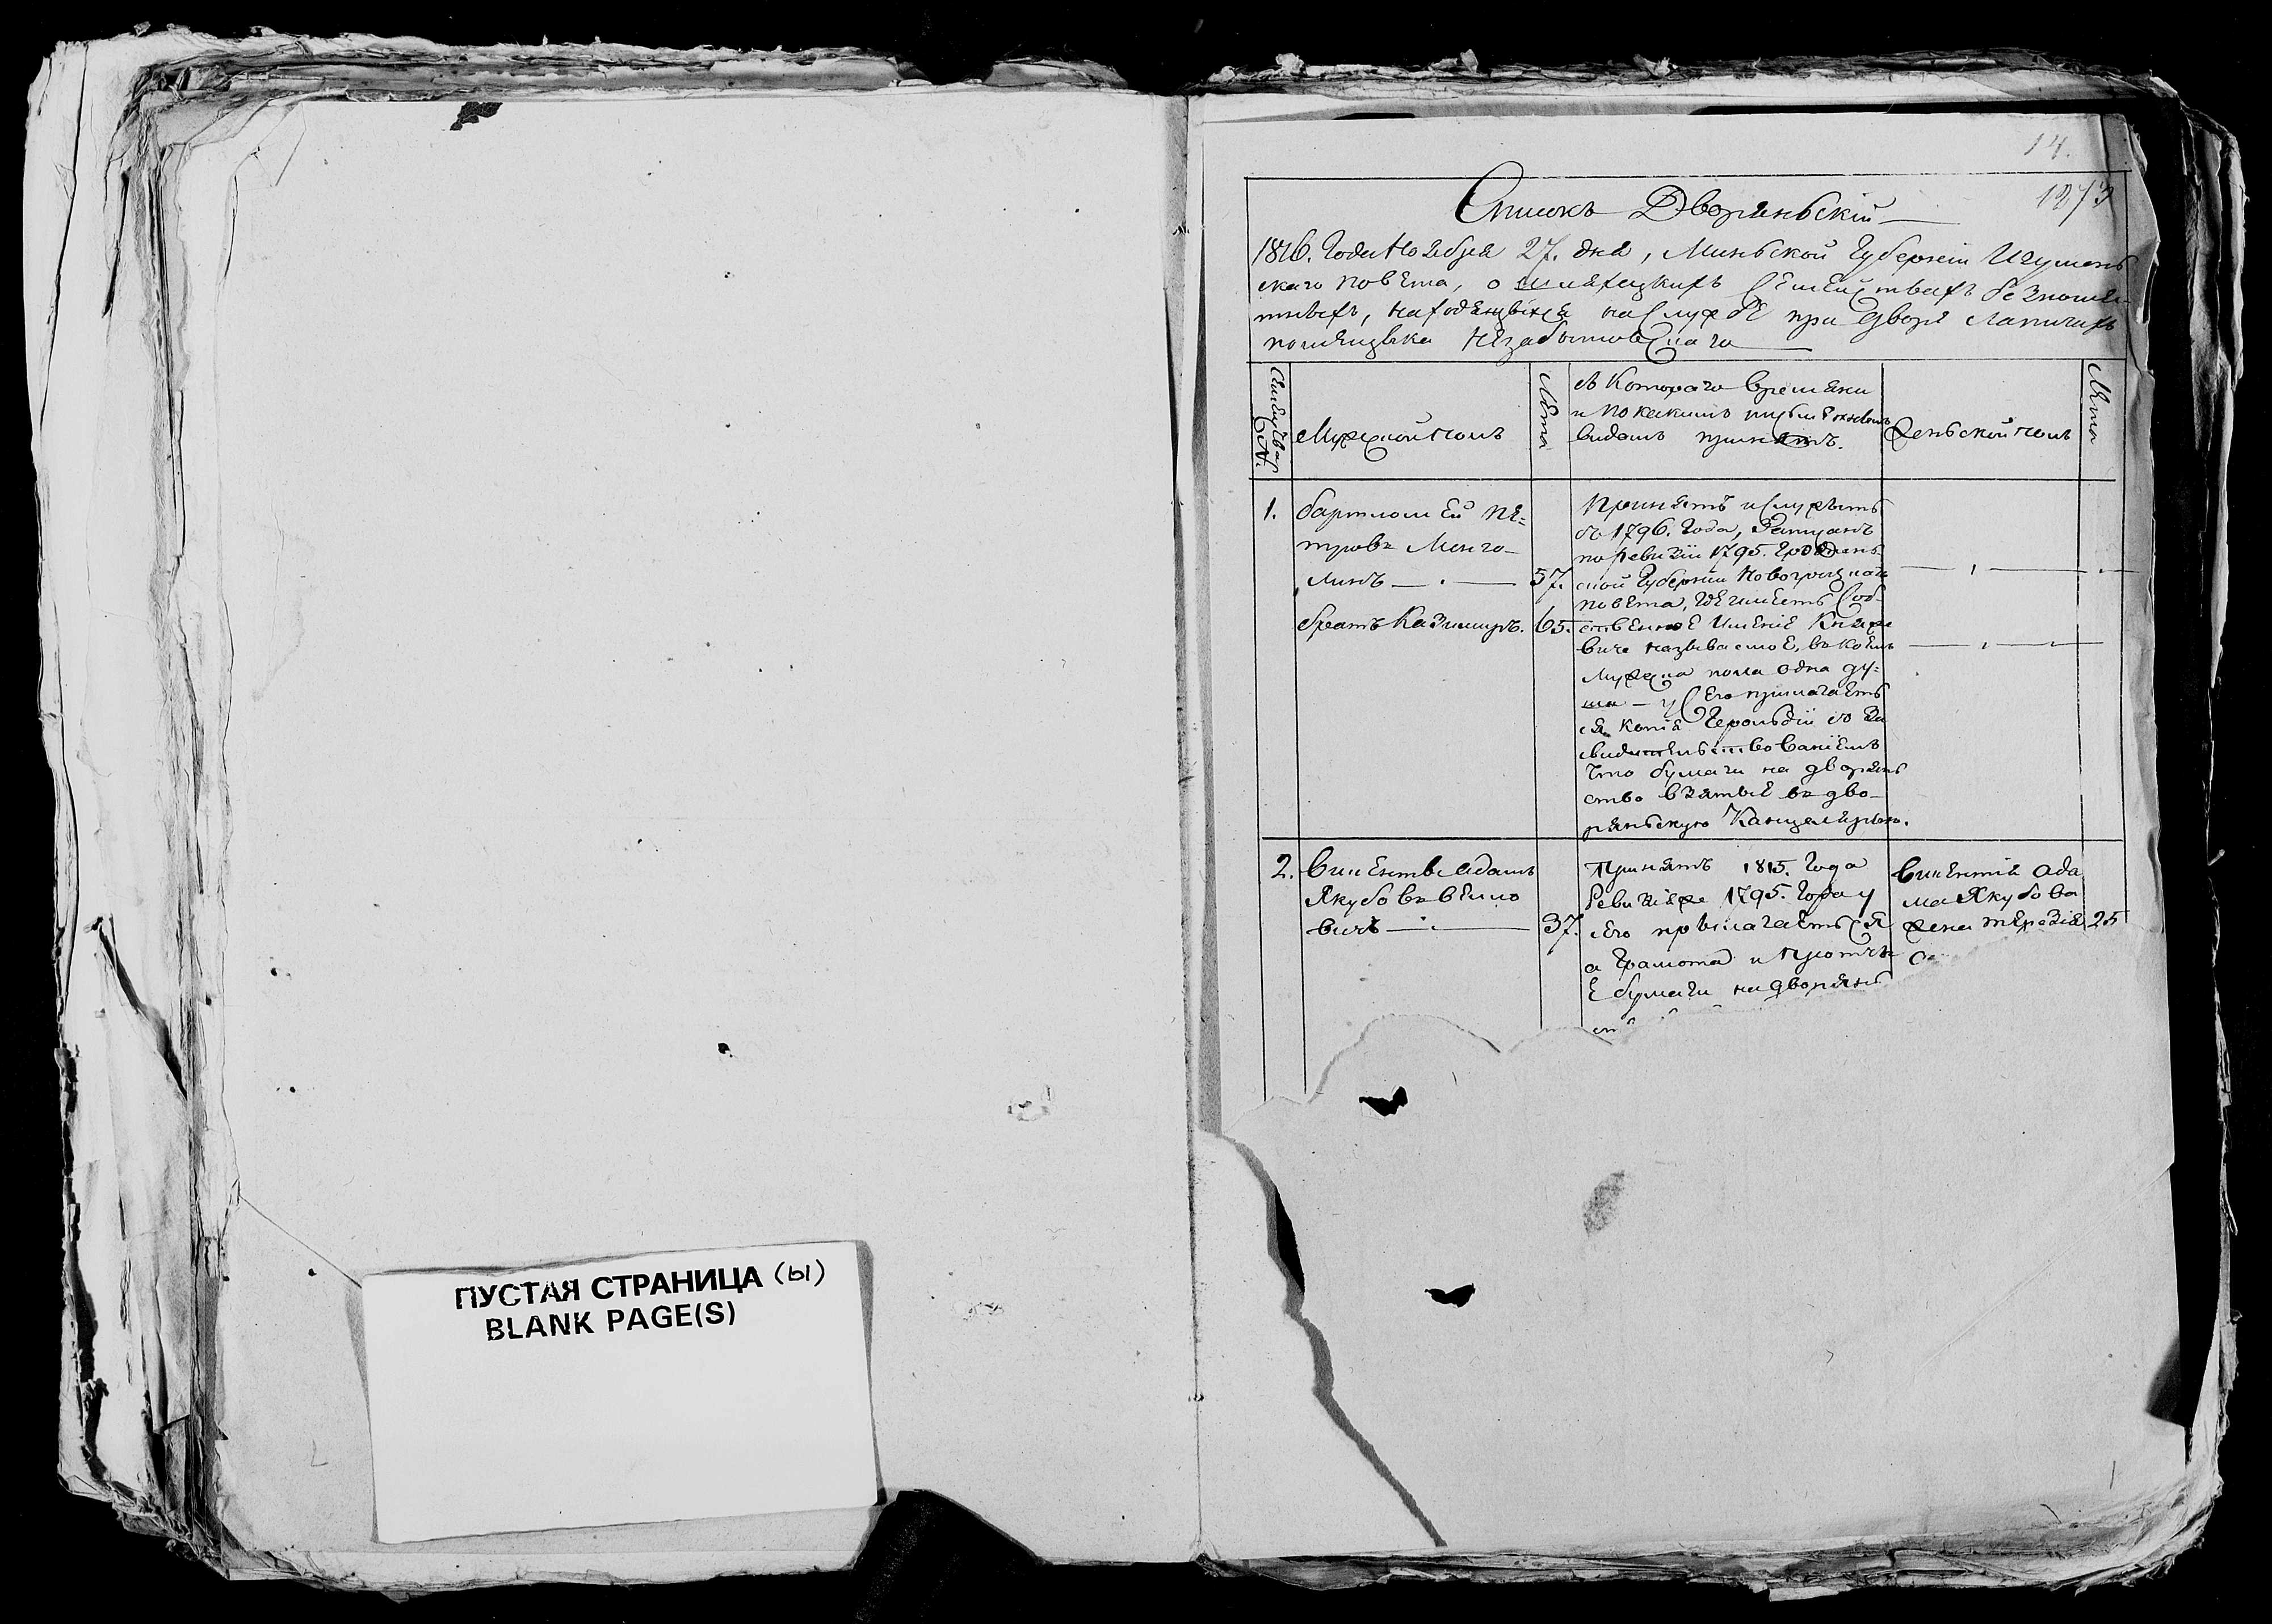 ПУСТАЯ СТРАНИЦА (ы)
BLANK PAGE(S)
14.
1273
Списокъ Дворяньскій
1816. Года Ноября 27. дня, Миньской Губерніи Игумень
скаго повѣта, о шляхецкихъ Семействахъ безпомѣ-
тныхъ, находящыхся на Службѣ при дворѣ Лапичахъ
помѣщыка Незабытовскаго
№.
Мужской полъ
Лѣта
съ Котораго времени
и по какимъ письменнымъ
видамъ принятъ.
Женьской полъ
Лѣта
1.
Бартломей Пе=
тровъ
57.
братъ Казимиръ.
65.
Принятъ и Служытъ
съ 1796. Года,
по ревизіи 1795. Гродзень
ской Губерніи Новогрудскаго
повѣта, где имѣетъ Соб-
ственное Имѣніе Княже
виче называемое, въ коемъ
Мужеска пола одна ду=
ша – у Сего прилагаетъ
ся Копія Герольдіи со За
свидетельствованіемъ
Что бумаги на дворянь
ство взятые въ дво-
ряньскую Канцелярію.
2.
Винсентъ Адамъ
Якубовъ
вичъ
37.
Принятъ 1815. Года
Ревизіяже 1795. Года у
сего прылагаетъСя
а Грамота и протчы
Е бумаги на дворянь
Винсентія Ада
ма Якубова
жена Терезія
25